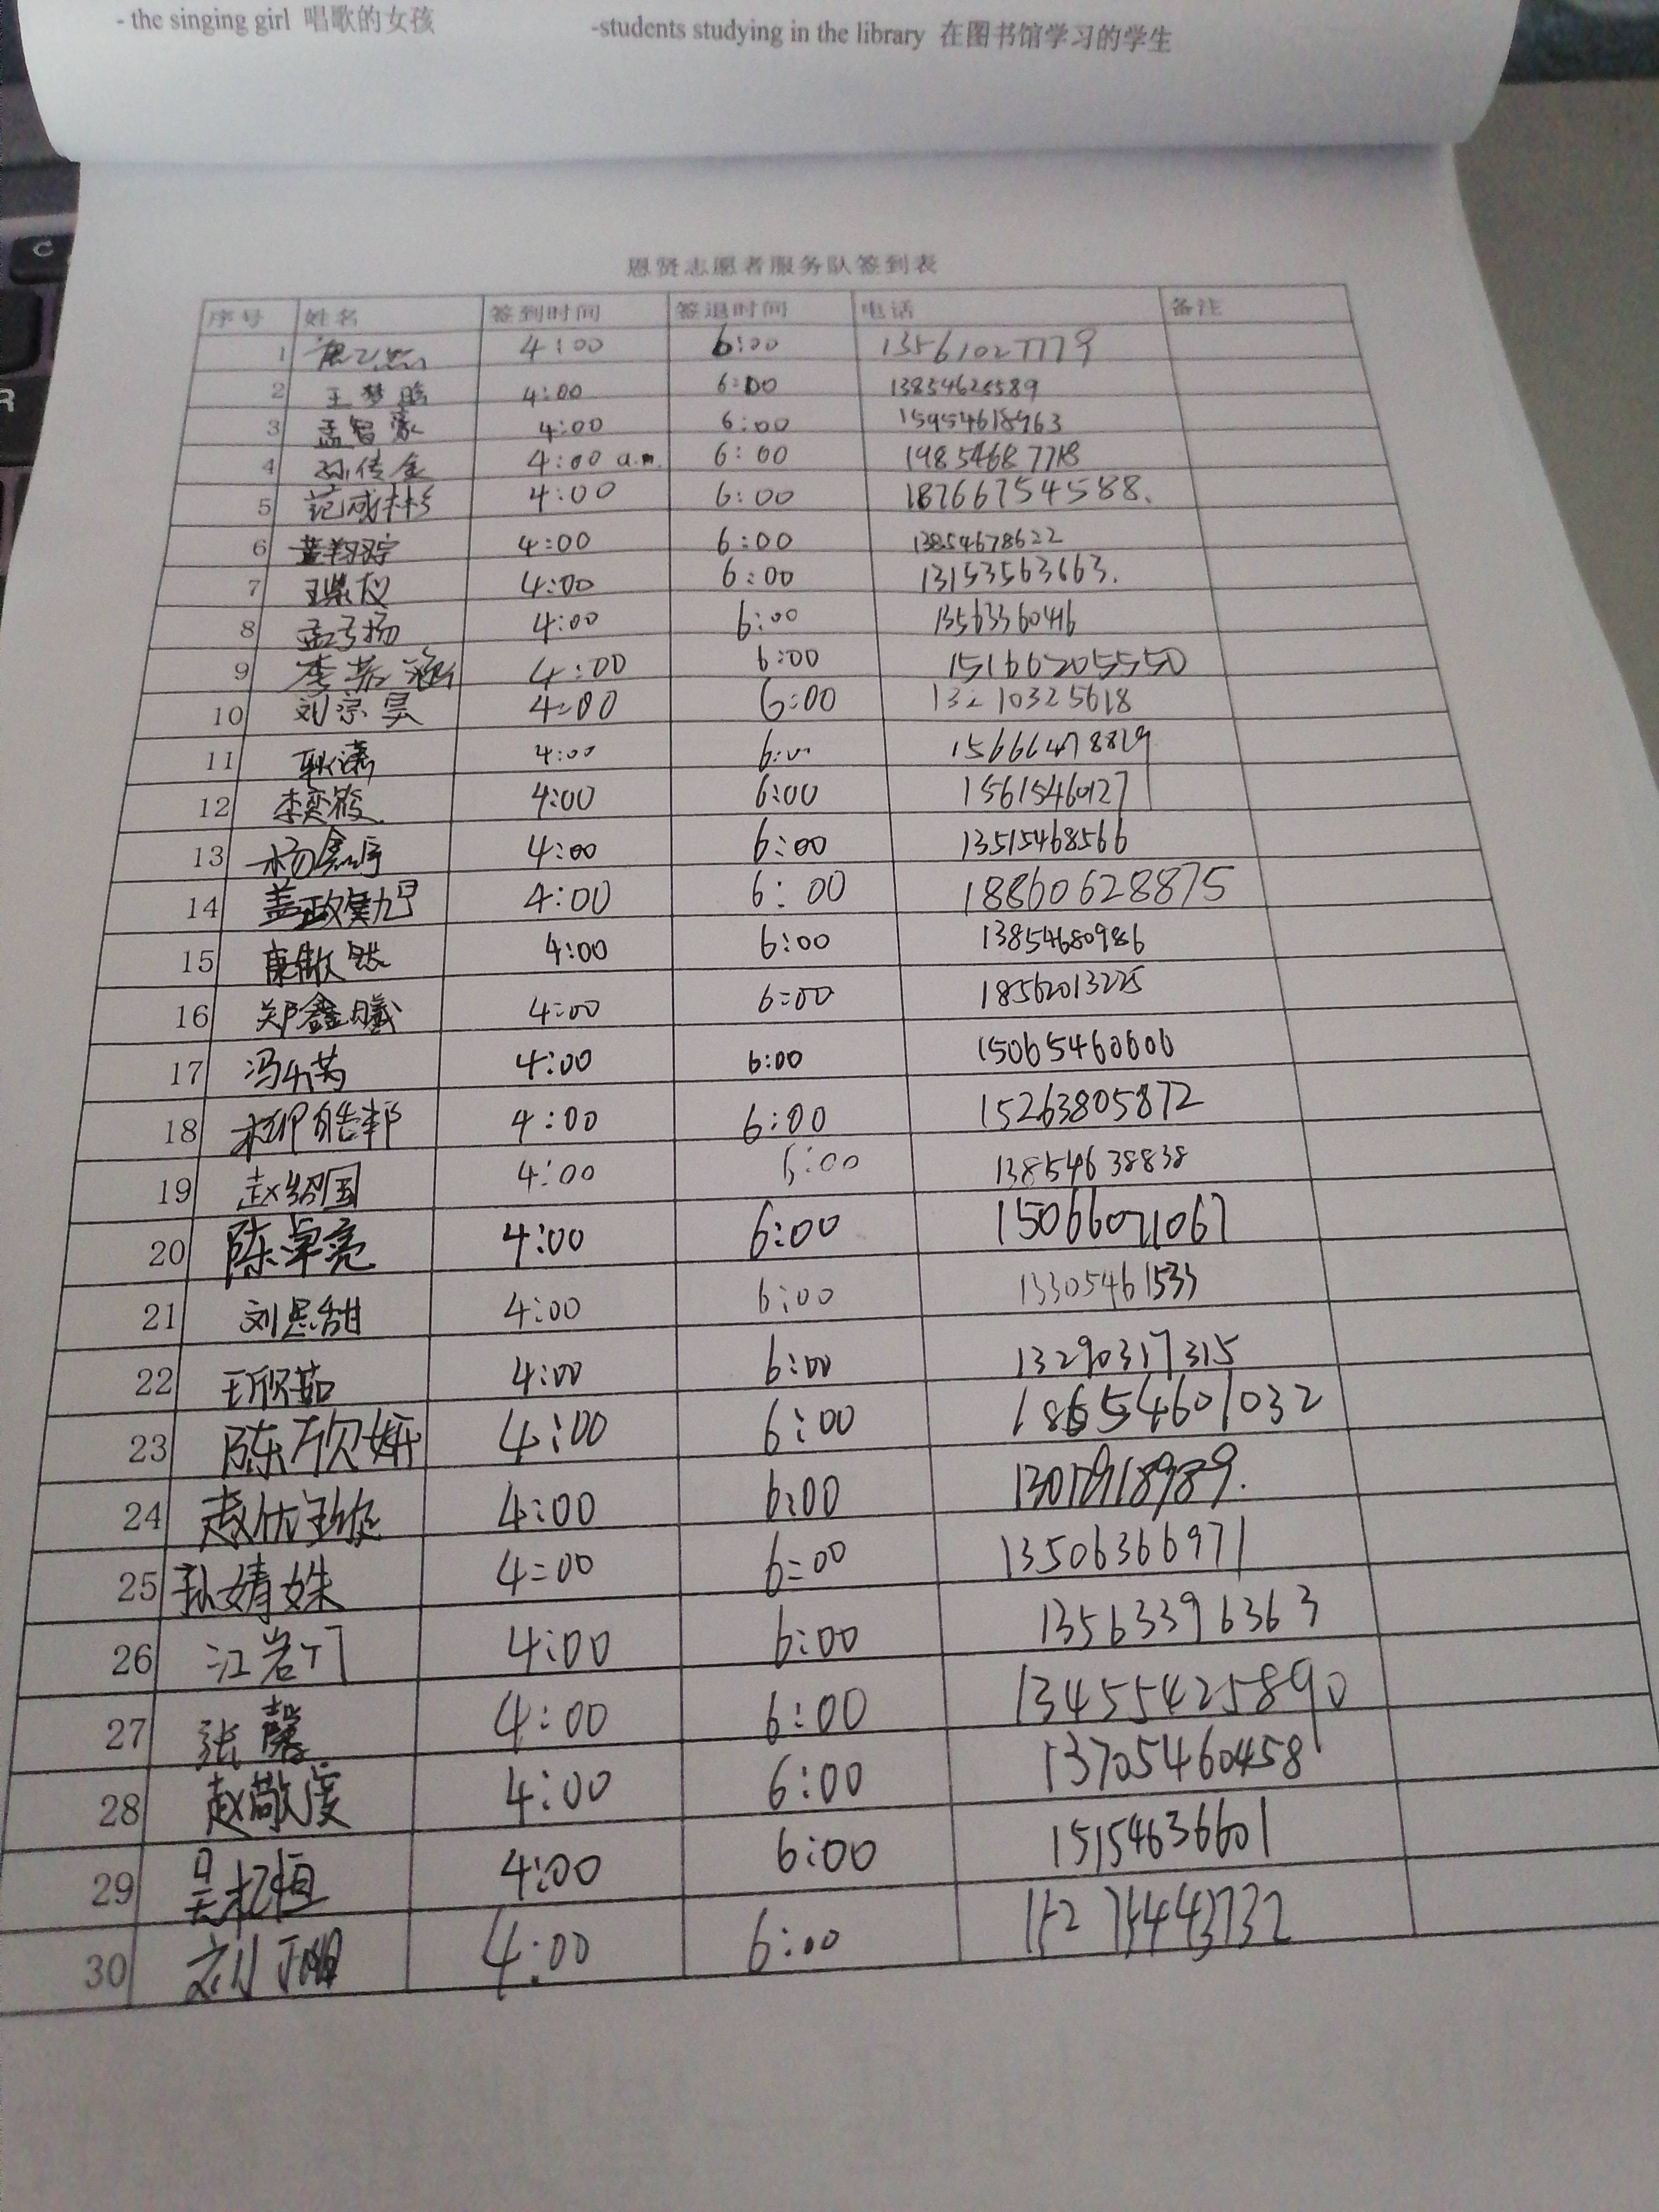 - the singing girl 唱歌的女孩 -students studying in the library 在图书馆学习的学生
恩贤志愿者服务队签到表
序号 姓名 签到时间 签退时间 电话 备注
1 4:00 6:00 13561027779
2 王梦晗 4:00 6:00 13854626589
3 孟智豪 4:00 6:00 15954618963
4 孙传金 4:00 a.m. 6:00 19854687718
5 范成彬 4:00 6:00 18766754588.
6 4:00 6:00 13854678622
7 4:00 6:00 13153563663.
8 孟子扬 4:00 6:00 13563360416
9 李若涵 4:00 6:00 15166205550
10 刘宗昊 4:00 6:00 13210325618
11 耿潇 4:00
12 李奕筱 4:00 6:00 15615460127
13 杨鑫宇 4:00 6:00 13515468566
14 4:00 6:00 18860628875
15 康傲然 4:00 6:00 13854680986
16 郑鑫曦 4:00 6:00 18562013225
17 4:00 6:00 15065460606
18 柳皓邦 4:00 6:00 15263805872
19 赵绍国 4:00 6:00 13854638838
20 陈卓亮 4:00 6:00 15066071067
21 刘思甜 4:00 6:00 13305461533
22 王欣茹 4:00 6:00 13290317315
23 陈欣妍 4:00 6:00 18654601032
24 4:00 6:00
25 孙婧姝 4:00 6:00 13506366971
26 江岩汀 4:00 6:00 13563396363
27 张馨 4:00 6:00 13455425890
28 赵敬度 4:00 6:00 13705460458
29 吴松恒 4:00 6:00 15154636601
30 4:00 6:00